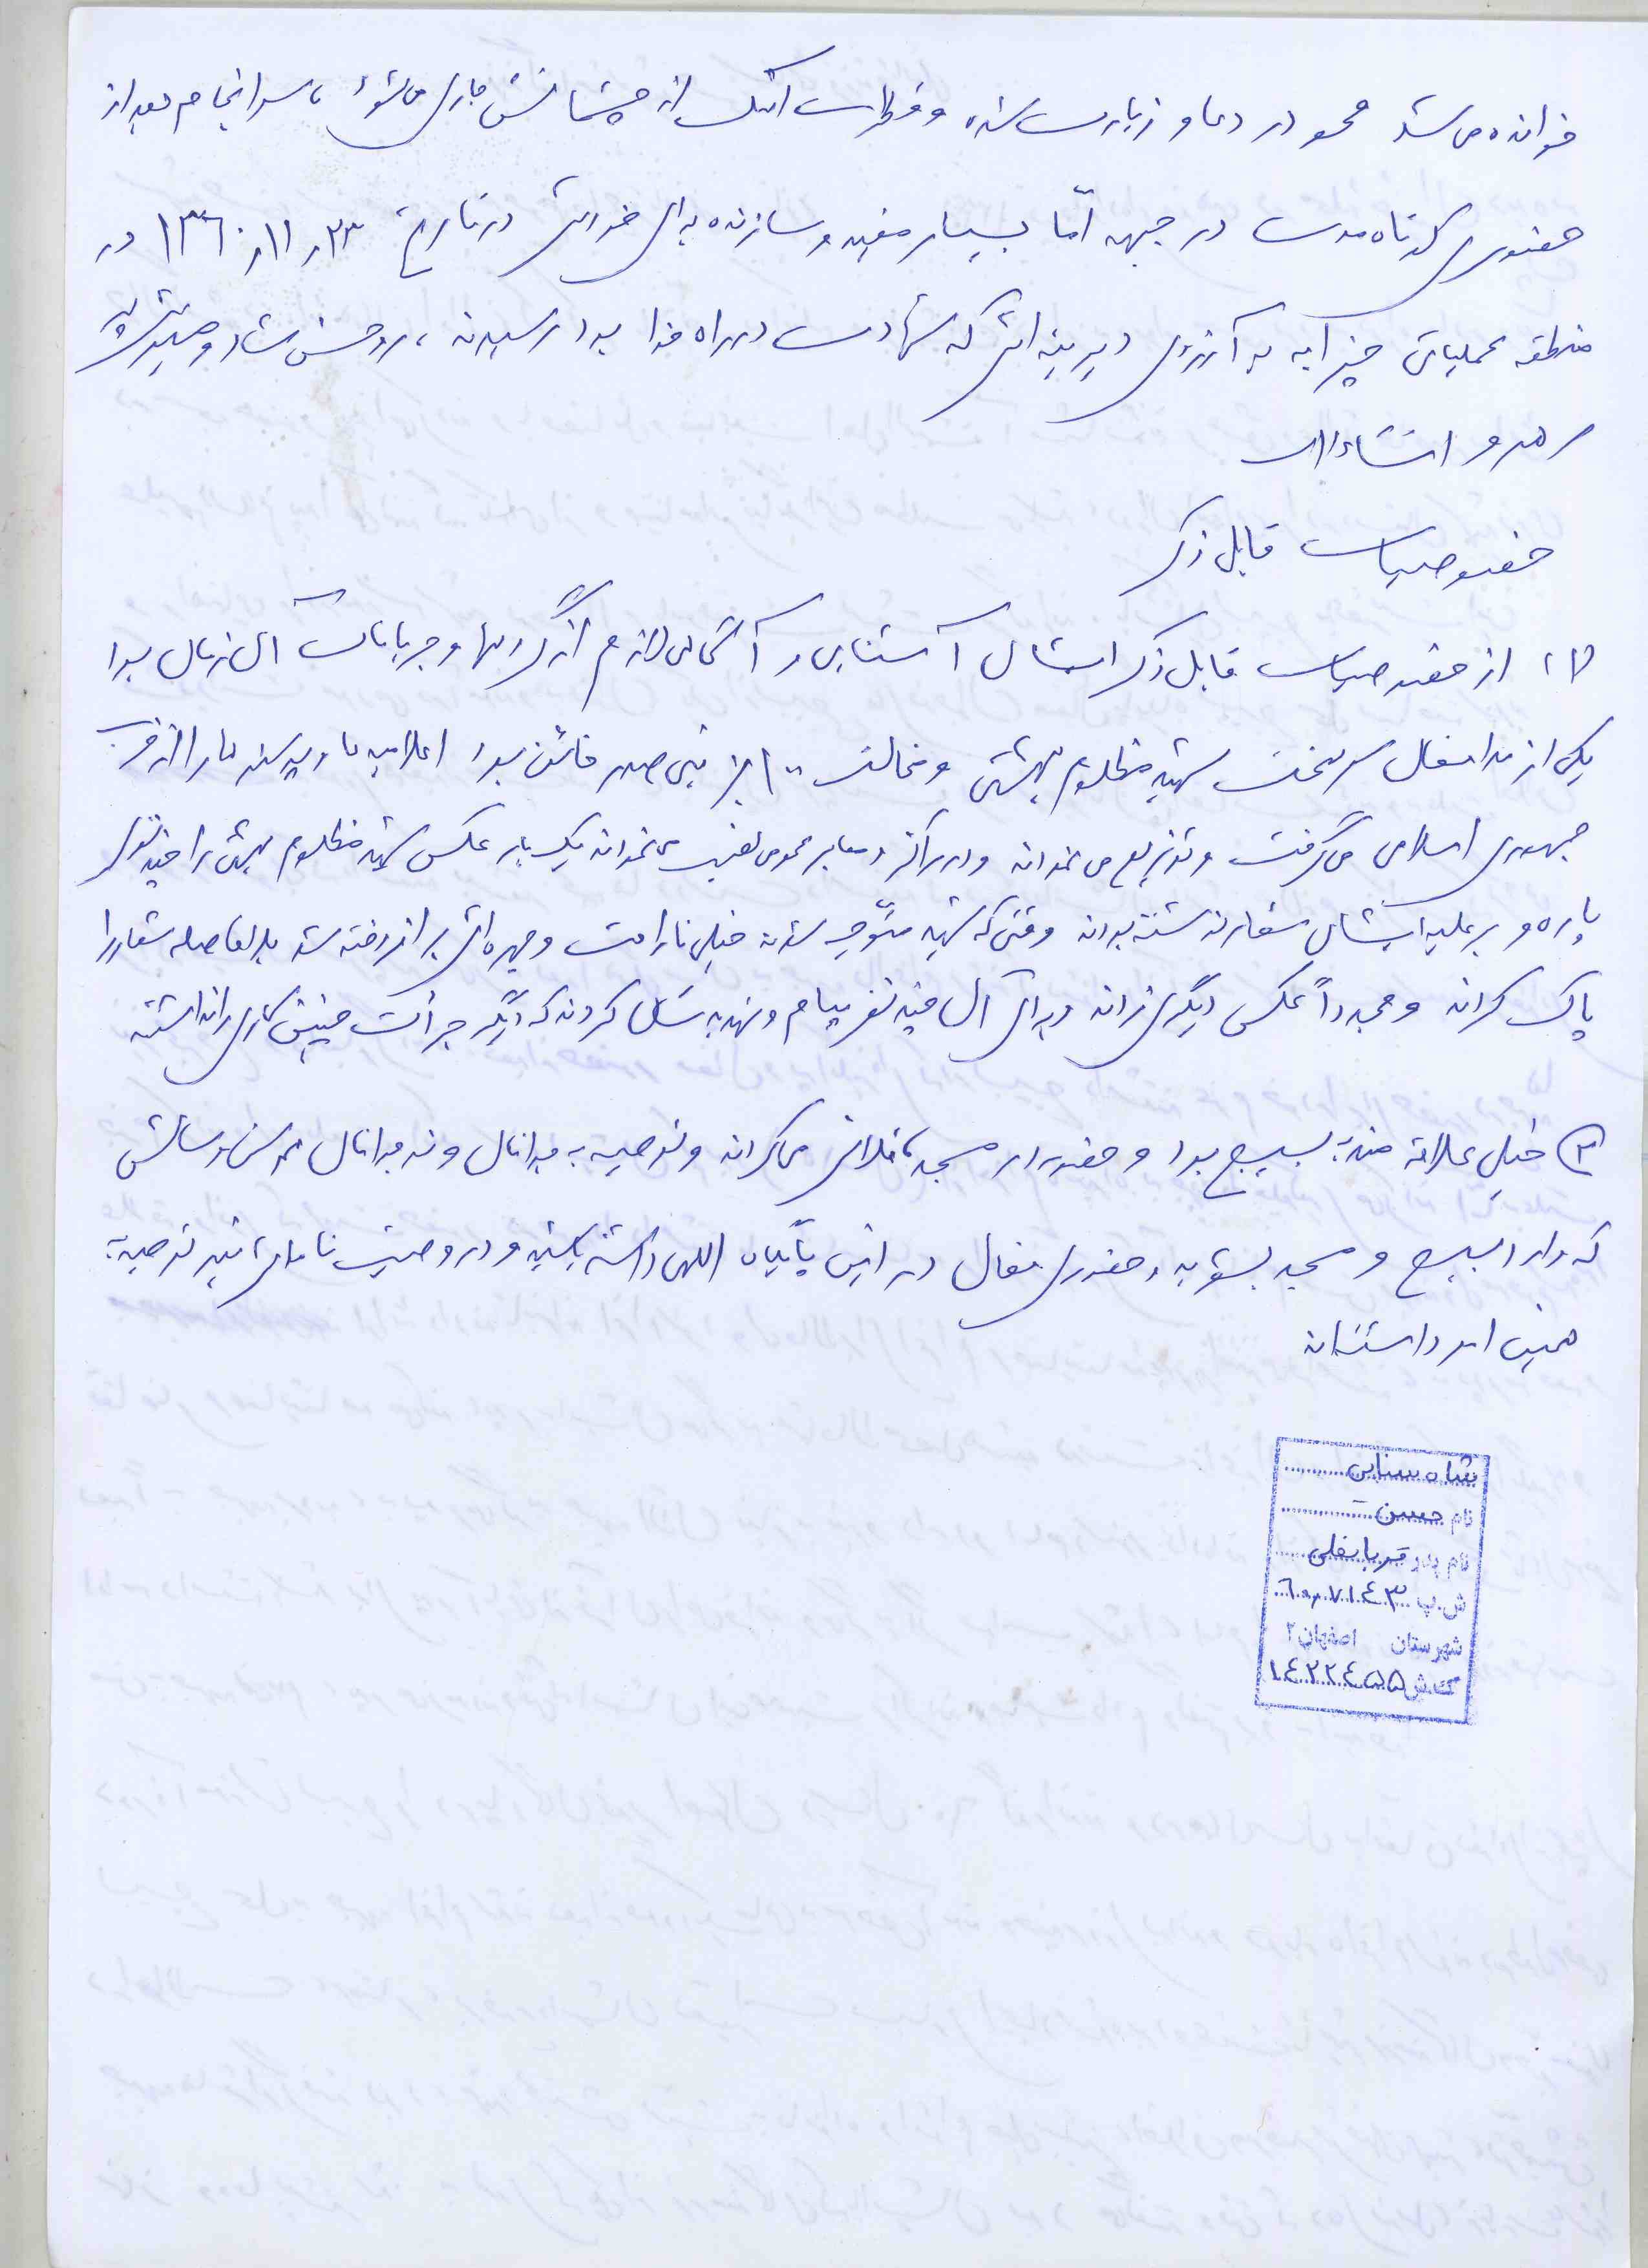 خوانده می شد محو در دعا و زیارت شده و قطرات اشک از چشمانش جاری می شود، سرانجام بعد از
حضوری کوتاه مدت در جبهه امّا بسیار مفید و سازنده برای خودش در تاریخ ۲۳ر۱۱ر۱۳۶۰ در
منطقه عملیاتی چزابه به آرزوی دیرینه اش که شهادت در راه خدا بود رسیدند، روحش شاد و
رهرو انشاءالله
خصوصیات قابل ذکر
۱) از خصوصیات قابل ذکر ایشان آشنایی و آگاهی لازم از گروهها و جریانات آن زمان بود
یکی از مدافعان سرسخت شهید مظلوم بهشتی و مخالف بنی صدر خائن بود اعلامیه ها و پوسترها را از حزب
جمهوری اسلامی می گرفت و توزیع می نمودند و در مراکز و معابر عمومی نصب می نمودند یک بار عکس شهید مظلوم بهشتی را چند نفر
پاره و بر علیه ایشان شعار نوشته بودند وقتی که شهید متوجه شدند خیلی ناراحت و چهره اش برافروخته شد بلافاصله شعار را
پاک کردند و مجدداً عکس دیگری زدند و برای آن چند نفر پیام و تهدید شان کردند که دیگر جرأت چنین کاری را نداشته
۲) خیلی علاقه مند به بسیج بود و حضور در مسجد تلاش می کردند و توصیه به جوانان و نوجوانان هم سن و سالش
که وارد بسیج و مسجد بشوید و حضوری فعال در این پایگاه الهی داشته باشید و در وصیت نامه اش نیز توصیه به
همین امر داشتند
شاه سنایی
نام حسن
نام پدر قربانعلی
ش.پ ۶۰۰۷۱۴۳
شهرستان اصفهان۲
کدش ۱۰۴۲۲۴۵۵